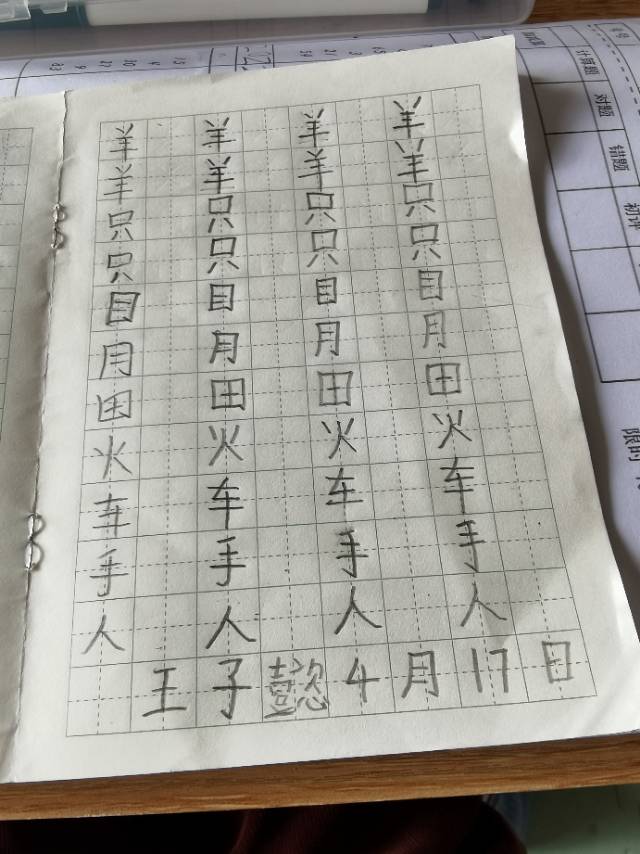 羊 羊 羊 羊
羊 羊 羊 羊
只 只 只 只
只 只 只 只
目 目 目 目
月 月 月 月
田 田 田 田
火 火 火 火
车 车 车 车
手 手 手 手
人 人 人 人
王子懿4月17日
计算题
对题
错题